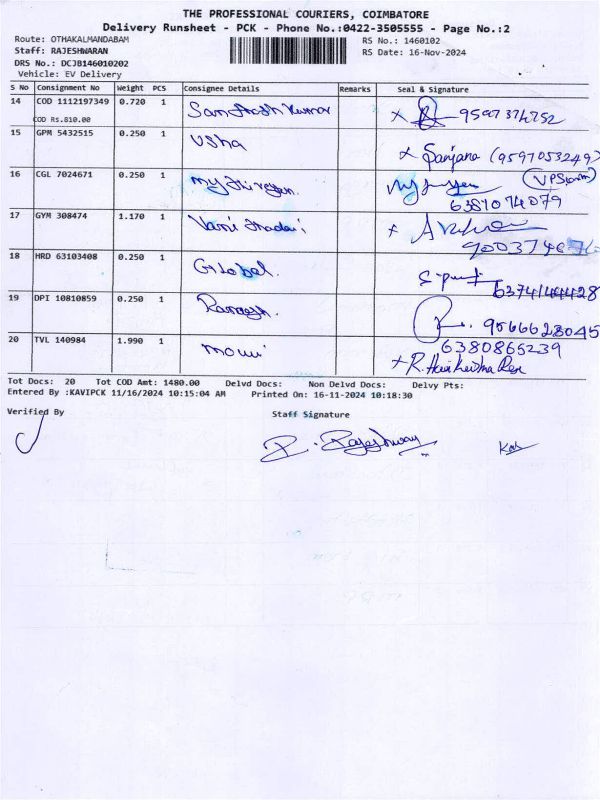 THE PROFESSIONAL COURIERS, COIMBATORE
Delivery Runsheet - PCK - Phone No.:0422-3505555 - Page No.:2
Route: OTHAKALMANDABAM RS No.: 1460102
Staff: RAJESHWARAN RS Date: 16-Nov-2024
DRS No.: DCJB146010202
Vehicle: EV Delivery
S No Consignment No Weight PCS Consignee Details Remarks Seal & Signature
14 COD 1112197349 0.720 1 Santhosh Kumar 9597374752
COD Rs.810.00
15 GPM 5432515 0.250 1 Usha
x Sanjana (9597053249)
16 CGL 7024671 0.250 1
6387074079
17 GYM 308474 1.170 1
18 HRD 63103408 0.250 1 Global.
19 DPI 10810859 0.250 1 Ramesh. 9566628045
20 TVL 140984 1.990 1 mouli 6380865239
Tot Docs: 20 Tot COD Amt: 1480.00 Delvd Docs: Non Delvd Docs: Delvy Pts:
Entered By :KAVIPCK 11/16/2024 10:15:04 AM Printed On: 16-11-2024 10:18:30
Verified By Staff Signature